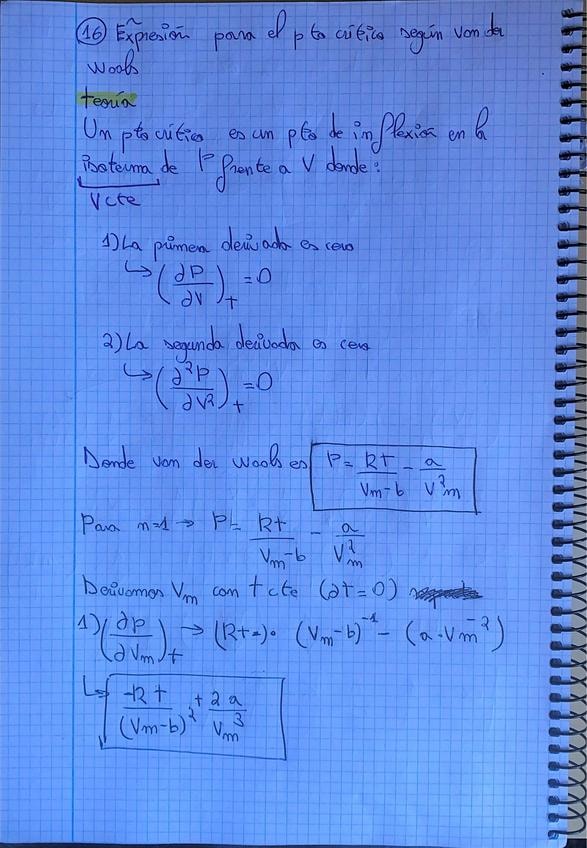 16 Expresión para el pto crítico según van der
Waals
teoría
Un pto crítico es un pto de inflexión en la
isoterma de P frente a V donde:
Vcte
1) La primera derivada es cero
↳ (∂P/∂V)_T = 0
2) La segunda derivada es cero
↳ (∂²P/∂V²)_T = 0
Donde van der Waals es P = Rt/(Vm-b) - a/V²m
Para n=1 → P = Rt/(Vm-b) - a/V²m
Derivamos Vm con t cte (∂t=0)
1) (∂P/∂Vm)_t → (Rt=)· (Vm-b)⁻¹ - (a·Vm⁻²)
↳ -Rt/(Vm-b)² + 2a/Vm³